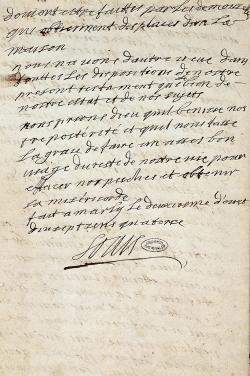 doivent estre faittes par les demeu
qui ont des places dans la
maison
nous n avons d autre veue dans
touttes les dispositions de nostre
present testament que le bien de
nostre estat et de nos sujets
nous prions dieu qu il benisse nos
tre posterité et qu il nous fasse
la grace de faire un asses bon
usage du reste de nostre vie pour
effacer nos peches et obtenir
sa misericorde
fait a marly le deuxieme d aoust
dix sept cens quatorze
Louis